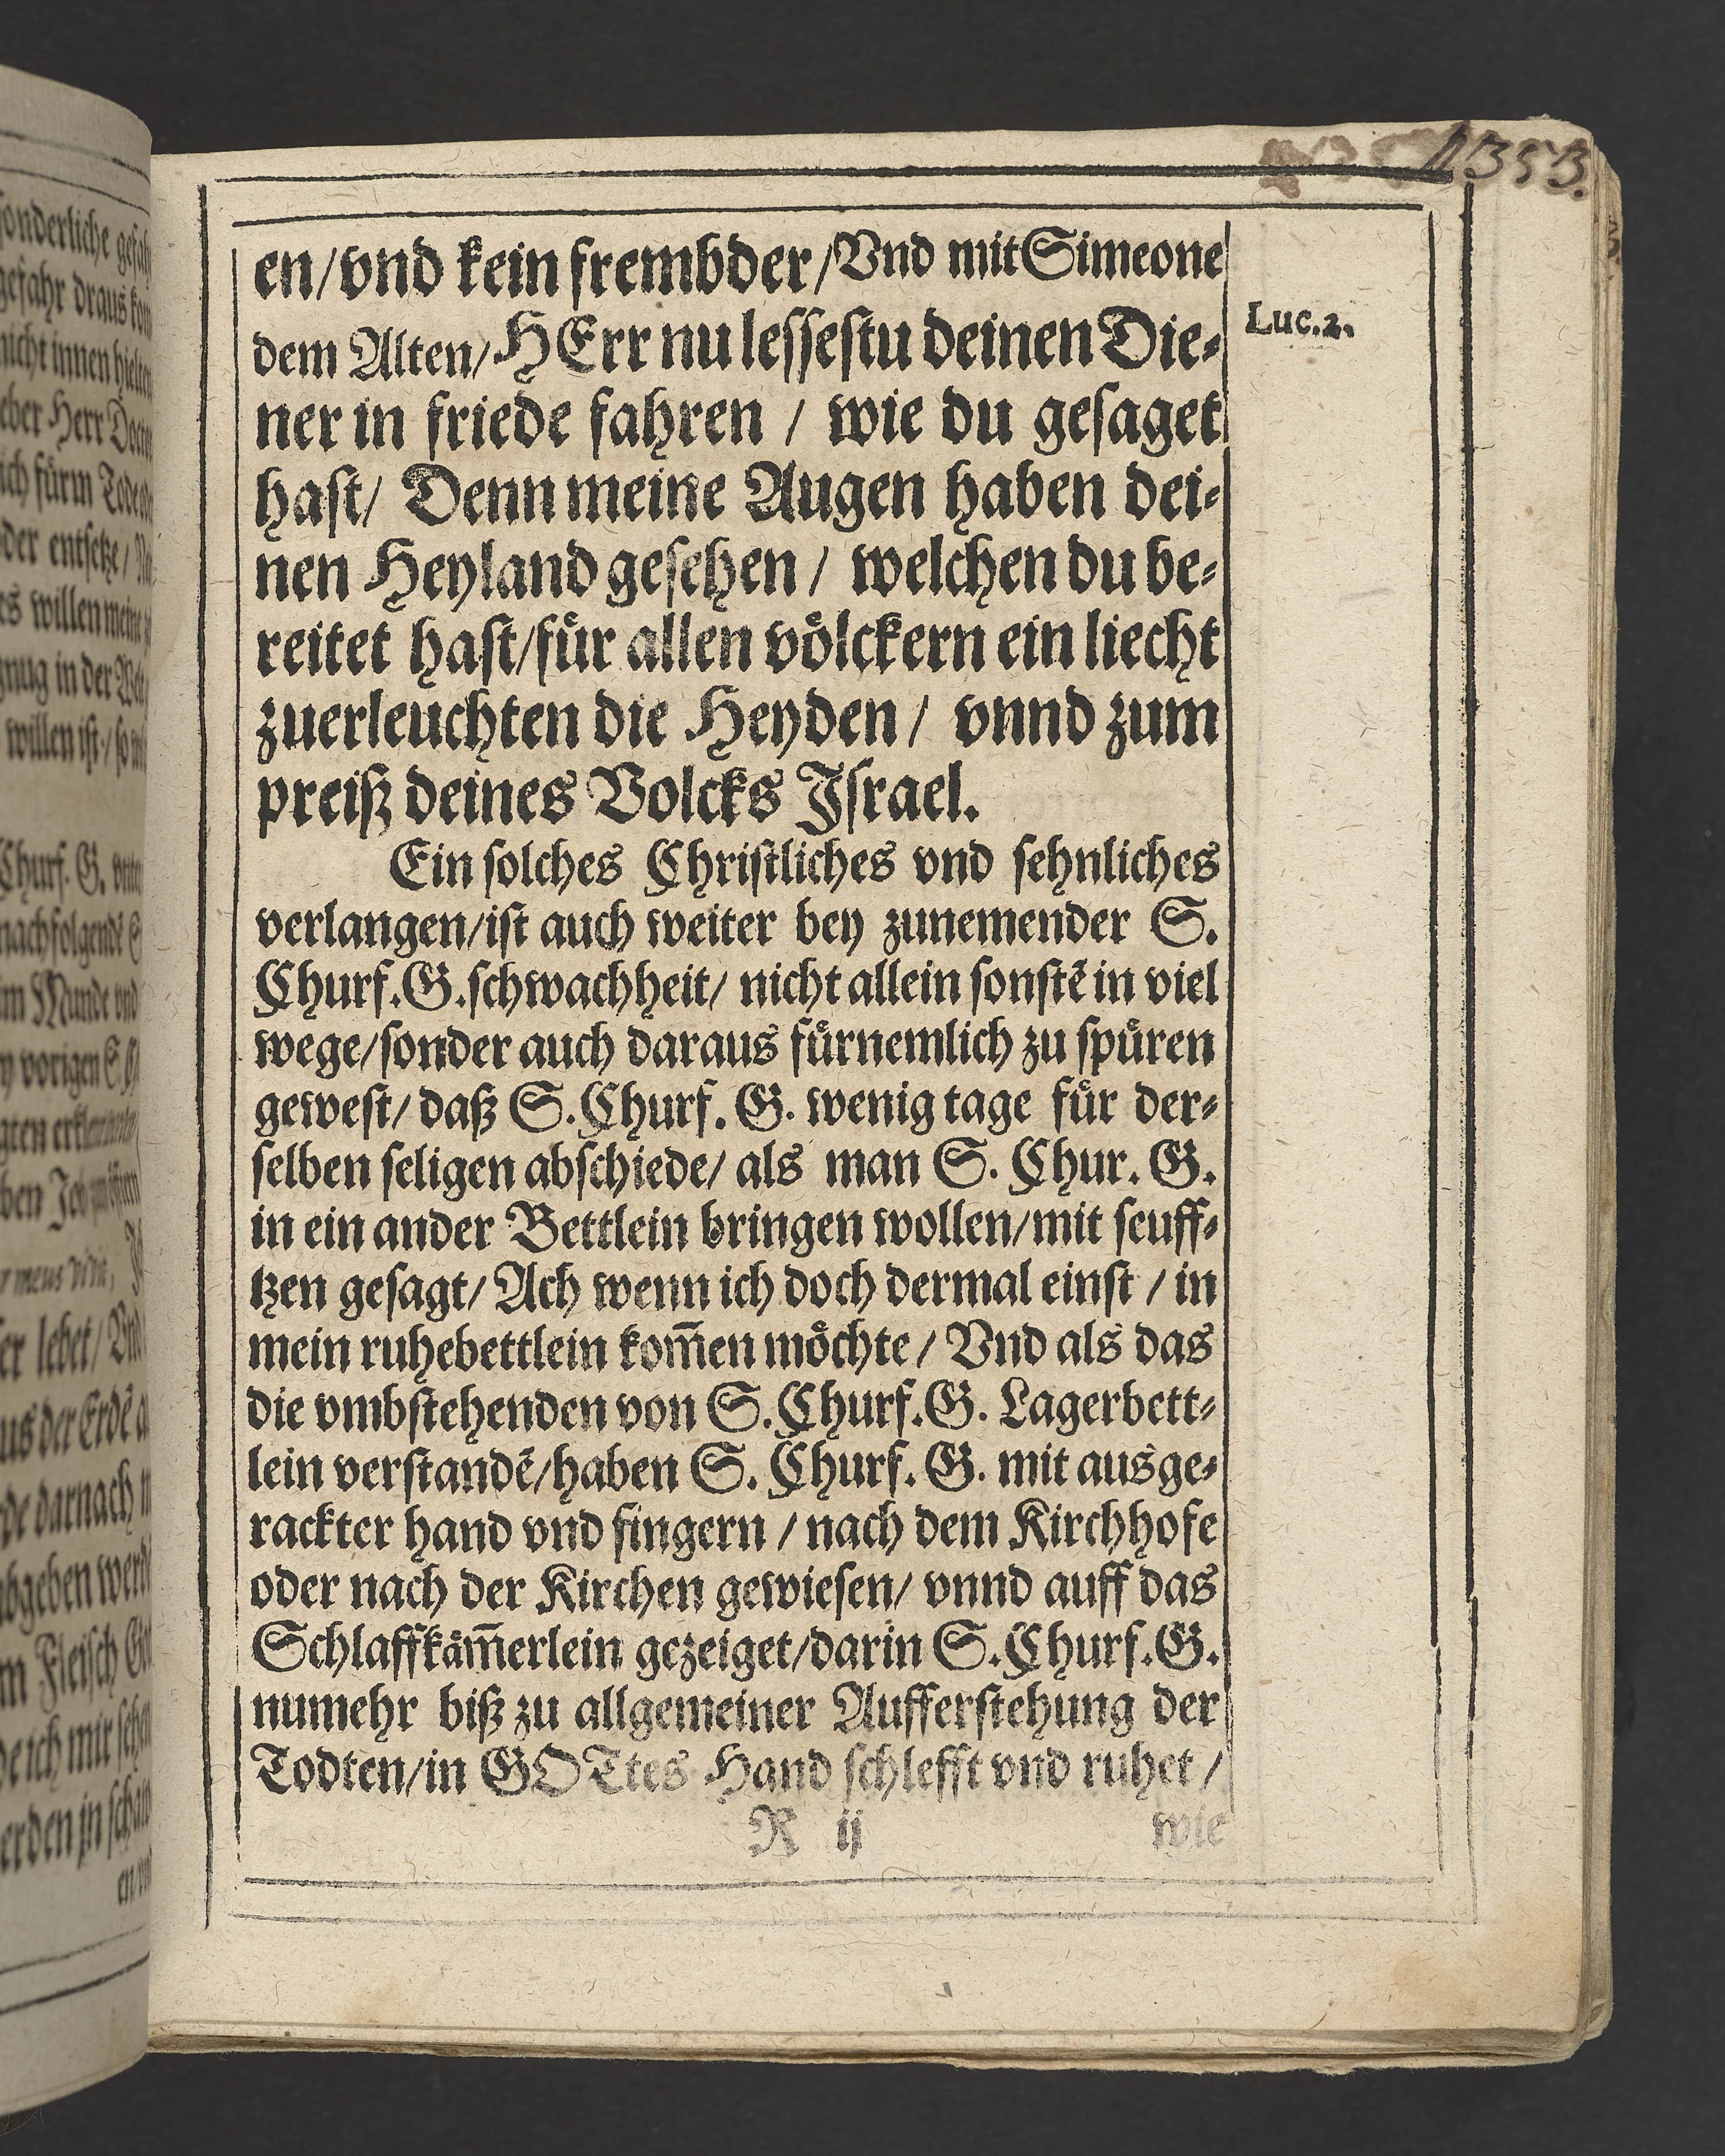 1353.
en/vnd kein frembder/Vnd mit Simeone
dem Alten/HErr nu lessestu deinen Die-
Luc.2.
ner in friede fahren / wie du gesaget
hast/ Denn meine Augen haben dei-
nen Heyland gesehen / welchen du be-
reitet hast/fuͤr allen voͤlckern ein liecht
zuerleuchten die Heyden / vnnd zum
preiß deines Volcks Israel.
Ein solches Christliches vnd sehnliches
verlangen/ist auch weiter bey zunemender S.
Churf.G.schwachheit/ nicht allein sonstẽ in viel
wege/sonder auch daraus fuͤrnemlich zu spuͤren
gewest/ daß S.Churf. G. wenig tage fuͤr der-
selben seligen abschiede/ als man S. Chur. G.
in ein ander Bettlein bringen wollen/mit seuff-
tzen gesagt/ Ach wenn ich doch dermal einst / in
mein ruhebettlein kom̃en moͤchte / Vnd als das
die vmbstehenden von S.Churf.G. Lagerbett-
lein verstandẽ/haben S. Churf. G. mit ausge-
rackter hand vnd fingern / nach dem Kirchhofe
oder nach der Kirchen gewiesen/ vnnd auff das
Schlaffkaͤm̃erlein gezeiget/darin S.Churf.G.
numehr biß zu allgemeiner Aufferstehung der
Todten/in GOTtes Hand schlefft vnd ruhet /
R ij
wie